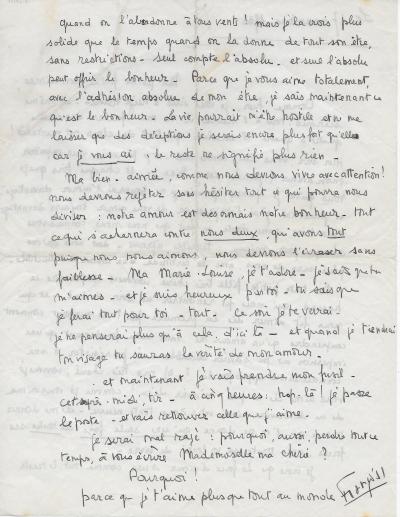 quand on l'abandonne à tous vents ! mais je la crois plus
solide que le temps quand on la donne de tout son être,
sans restrictions - seul compte l'absolu - et seul l'absolu
peut offrir le bonheur - Parce que je vous aime totalement,
avec l'adhésion absolue de mon être, je sais maintenant ce
qu'est le bonheur - La vie pourrait m'être hostile et ne me
laisser que des déceptions je serais encore plus fort qu'elle
car je vous ai, le reste ne signifie plus rien -
Ma bien-aimée, comme nous devrons vivre avec attention !
nous devrons rejeter sans hésiter tout ce qui pourra nous
diviser : notre amour est désormais notre bonheur - tout
ce qui s'acharnera contre nous deux, qui avons tout
puisque nous nous aimons, nous devrons l'écraser sans
faiblesse - Ma Marie-Louise, je t'adore - je sais que tu
m'aimes - et je suis heureux par toi - tu sais que
je ferai tout pour toi - tout - Ce soir je te verrai -
je ne penserai plus qu'à cela d'ici là - et quand je tiendrai
ton visage tu sauras la vérité de mon amour -
et maintenant je vais prendre mon fusil -
cet après-midi, tir - à cinq heures hop-là ! je passe
le poste - et vais retrouver celle que j'aime -
je serai mal rasé : pourquoi, aussi, perdre tout ce
temps, à vous écrire Mademoiselle ma chérie ?
Pourquoi !
parce que je t'aime plus que tout au monde